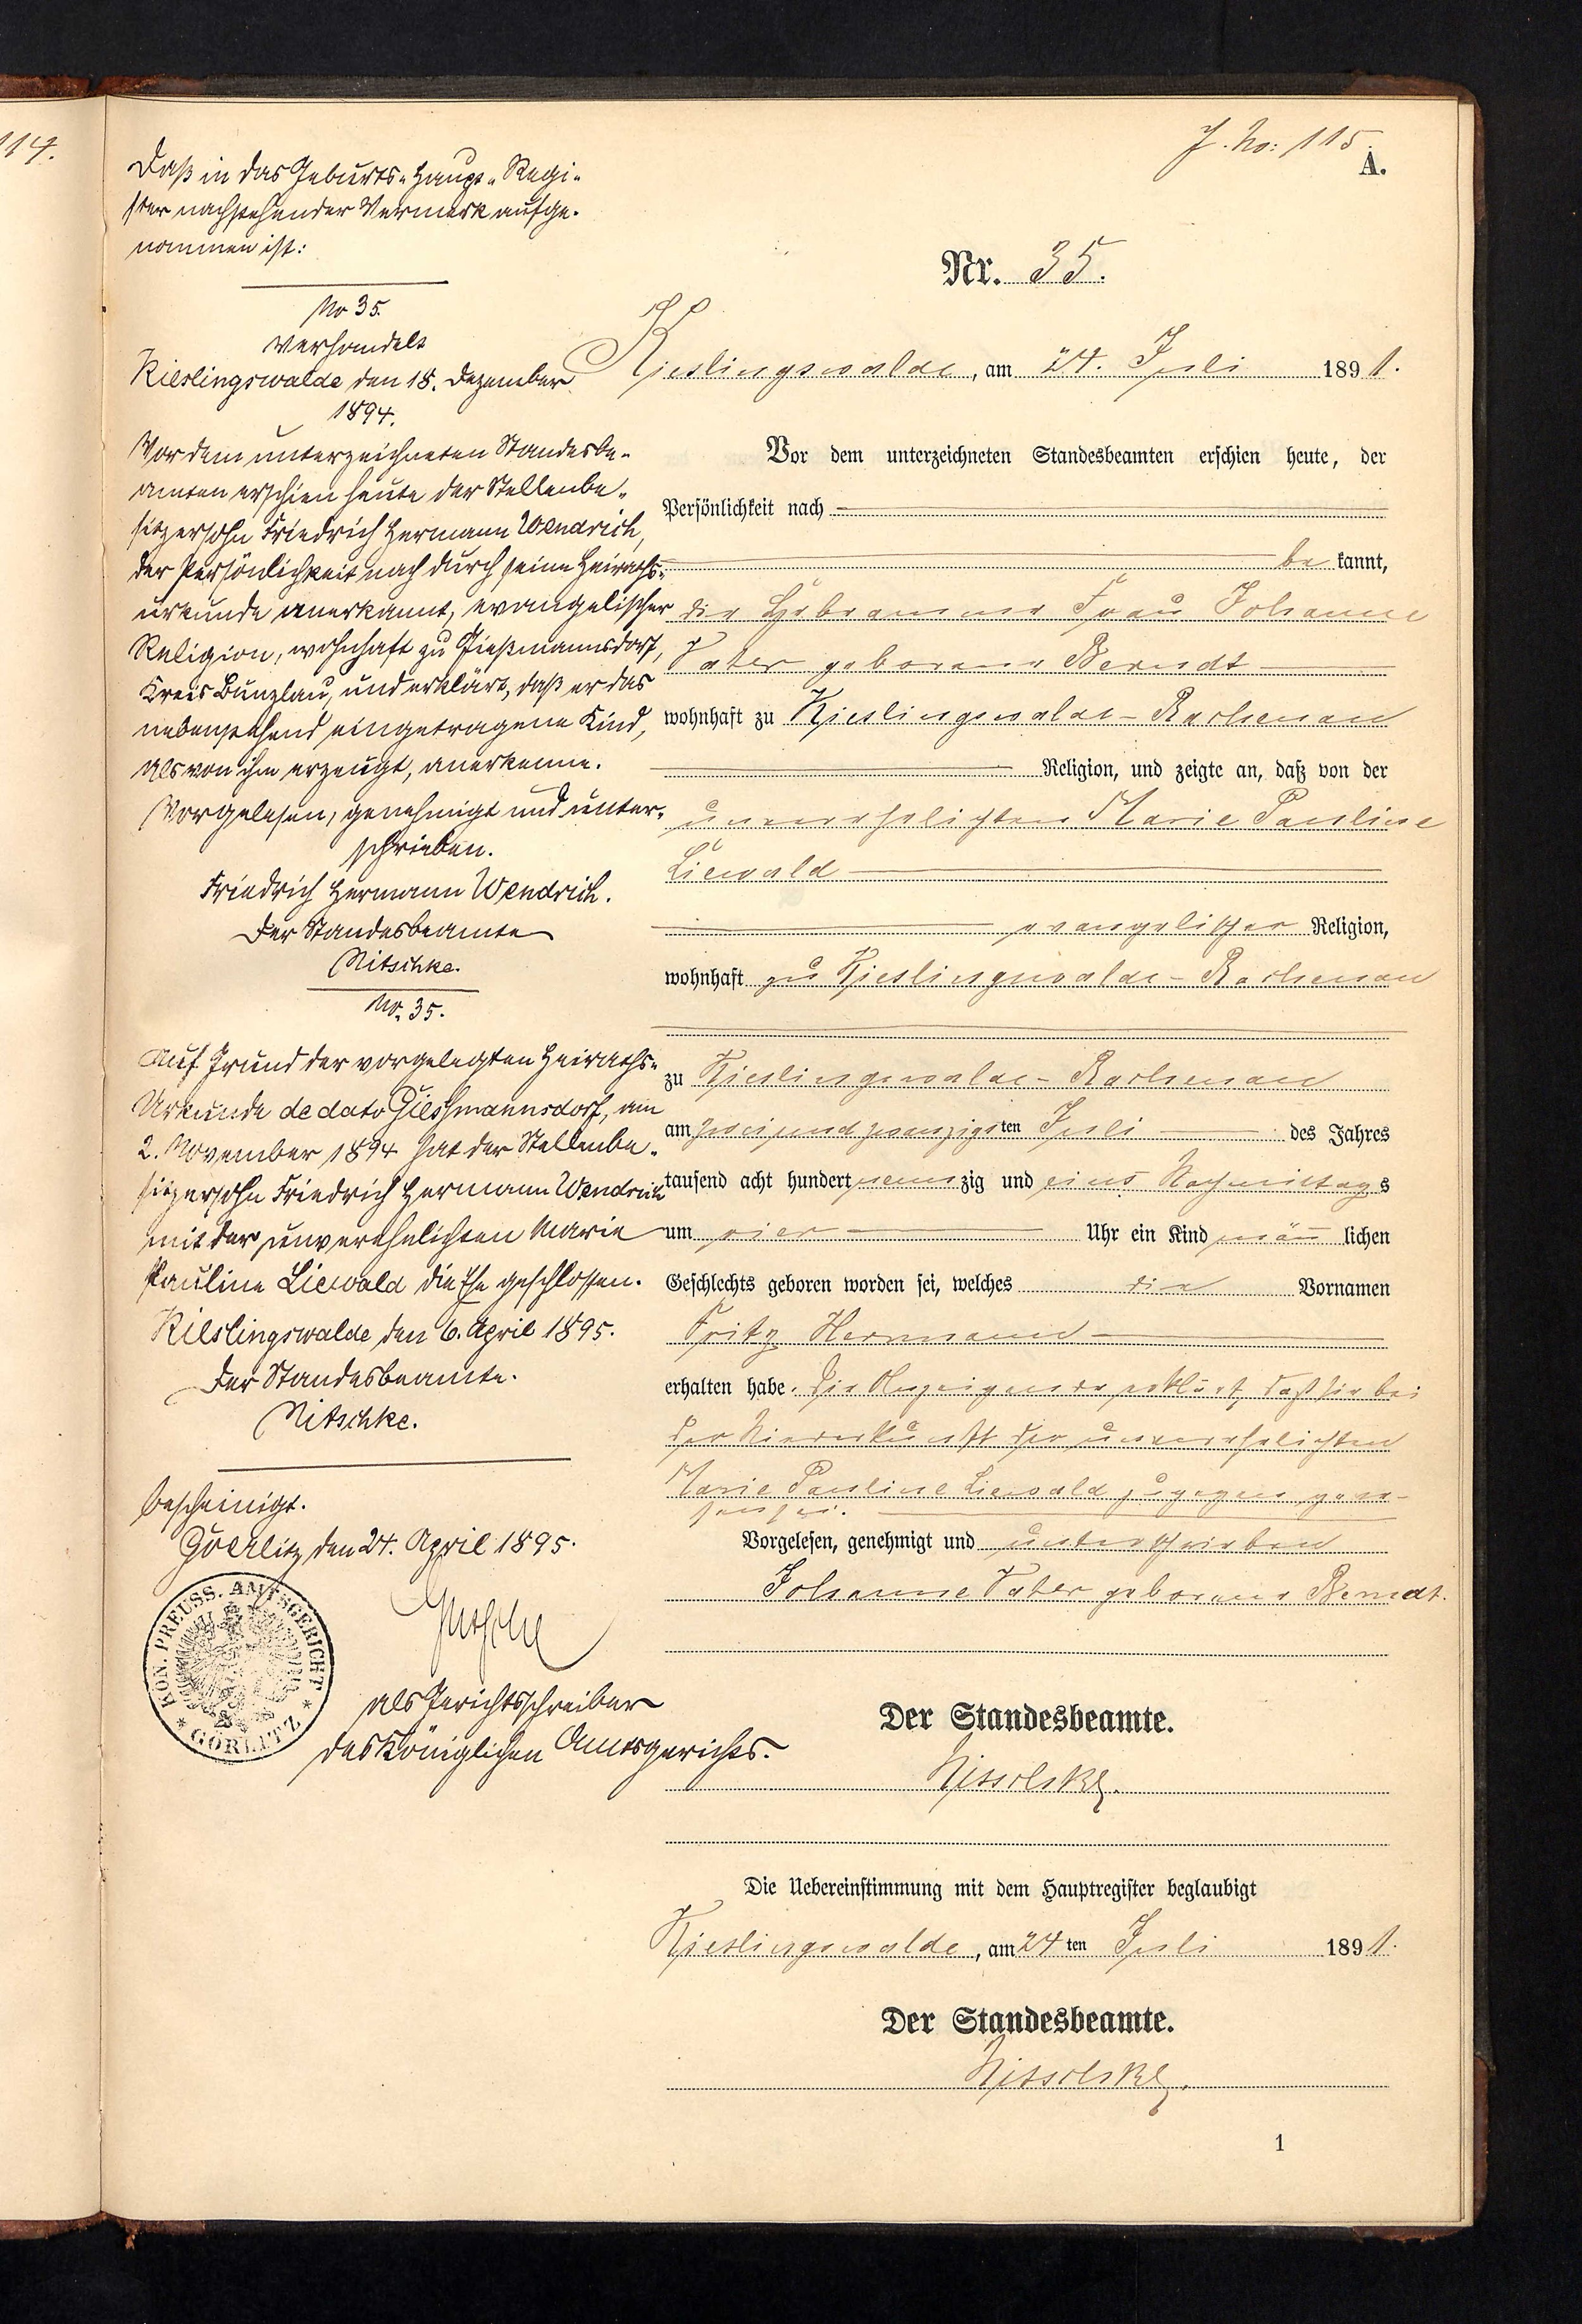 114.
J. No: 115.
A.
Daß in das Geburts-Haupt-Regi-
ster nachstehender Vermerk aufge-
nommen ist:
No 35.
Verhandelt
Kieslingswalde den 18. Dezember
1894.
Vor dem unterzeichneten Standesbe-
amten erschien heute der Stellenbe-
sitzersohn Friedrich Hermann Wendrich,
der Persönlichkeit nach durch seine Heiraths-
urkunde anerkannt, evangelischer
Religion, wohnhaft zu Gießmannsdorf,
Kreis Bunzlau, und erklärt, daß er das
nebenstehend eingetragene Kind,
als von ihm erzeugt, anerkenne.
Vorgelesen, genehmigt und unter-
schrieben.
Friedrich Hermann Wendrich.
Der Standesbeamte
Nitschke.
No. 35.
Auf Grund der vorgelegten Heiraths-
Urkunde de dato Giessmannsdorf, am
2. November 1894 hat der Stellenbe-
sitzersohn Friedrich Hermann Wendrich
mit der unverehelichten Marie
Pauline Liewald die Ehe geschlossen.
Kieslingswalde den 6. April 1895.
Der Standesbeamte.
Nitschke.
Bescheinigt.
Goerlitz, den 24. April 1895.
als Gerichtsschreiber
des Königlichen Amtsgerichts.
KÖN. PREUSS. AMTSGERICHT
* GÖRLITZ *
Nr. 35.
Kieslingswalde, am 24. Juli 1891.
Vor dem unterzeichneten Standesbeamten erschien heute, der
Persönlichkeit nach
bekannt,
die Hebamme Frau Johanne
Vater geborene Berndt
wohnhaft zu Kieslingswalde-Rachenau
Religion, und zeigte an, daß von der
unverehelichten Marie Pauline
Liewald
evangelischer Religion,
wohnhaft zu Kieslingswalde-Rachenau
zu Kieslingswalde-Rachenau
am zwei und zwanzigsten Juli des Jahres
tausend acht hundert neunzig und eins Nachmittags
um vier Uhr ein Kind männlichen
Geschlechts geboren worden sei, welches die Vornamen
Fritz Hermann
erhalten habe. Die Anzeigende erklärt, daß sie bei
der Niederkunft der unverehelichten
Marie Pauline Liewald zugegen gewe-
sen sei.
Vorgelesen, genehmigt und unterschrieben
Johanne Vater geborene Berndt.
Der Standesbeamte.
Nitschke.
Die Uebereinstimmung mit dem Hauptregister beglaubigt
Kieslingswalde, am 24ten Juli 1891.
Der Standesbeamte.
Nitschke.
1